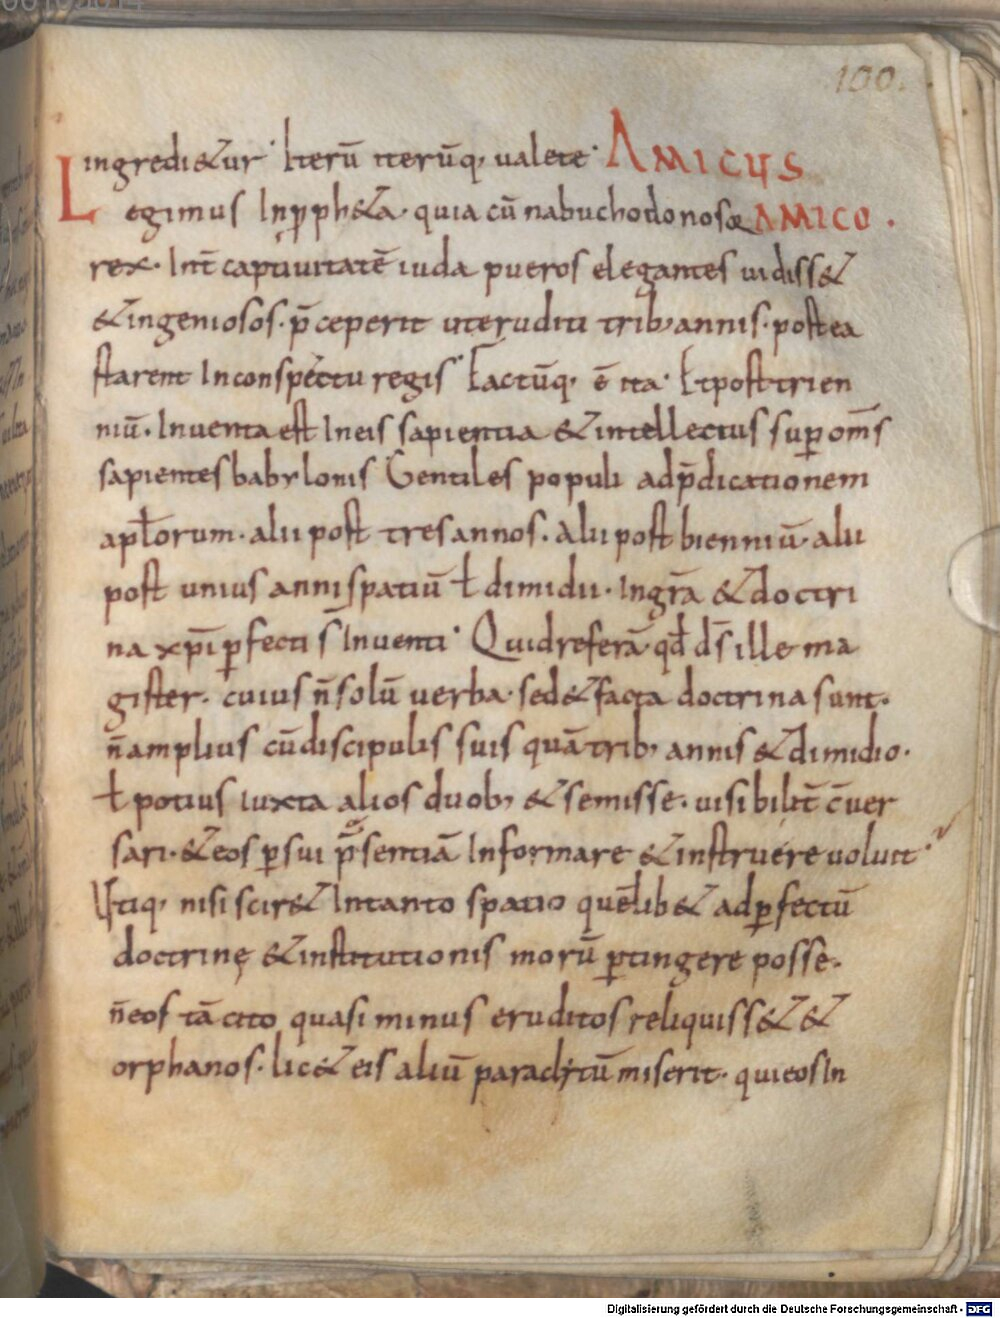 100.
ingredi&ur· Iterū iterūq; ualete· AMICUS
Legimus Inꝓph&a· quia cū nabuchodonosor AMICO.
rex· Inť captiuitatē iuda pueros elegantes uidiss&
&ingeniosos· p̄ceperit uteruditi trib; annis· postea
starent Inconspectu regis· Factūq; ē ita· Et post trien
niū· Inuenta est Ineis sapientia &intellectus suꝑ om̄s
sapientes babylonis· Gentiles populi adp̄dicationem
apłorum· alii post tres annos· alii post bienniū· alii
post unius anni spatiū ł dimidii· Ingr̄a &doctri
na xp̄i ꝑfecti s̄ Inuenti· Quidreferā qđ dn̄s ille ma
gister· cuius n̄ solū uerba· sed&facta doctrina sunt·
n̄ amplius cūdiscipulis suis quā trib; annis &dimidio·
ł potius iuxta alios duob; &semisse· uisibilit̄ c̄uer
sari· &eos ꝑsui p̄sentiā Informare &instruere uoluit·
Vtiq; nisi scir& Intanto spatio quēlib& adꝑfectū
doctrinę &institutionis morū ꝑtingere posse·
n̄ eos tā cito quasi minus eruditos reliquiss& &
orphanos· lic& eis aliū paraclytū miserit· qui eos In
Digitalisierung gefördert durch die Deutsche Forschungsgemeinschaft · DFG